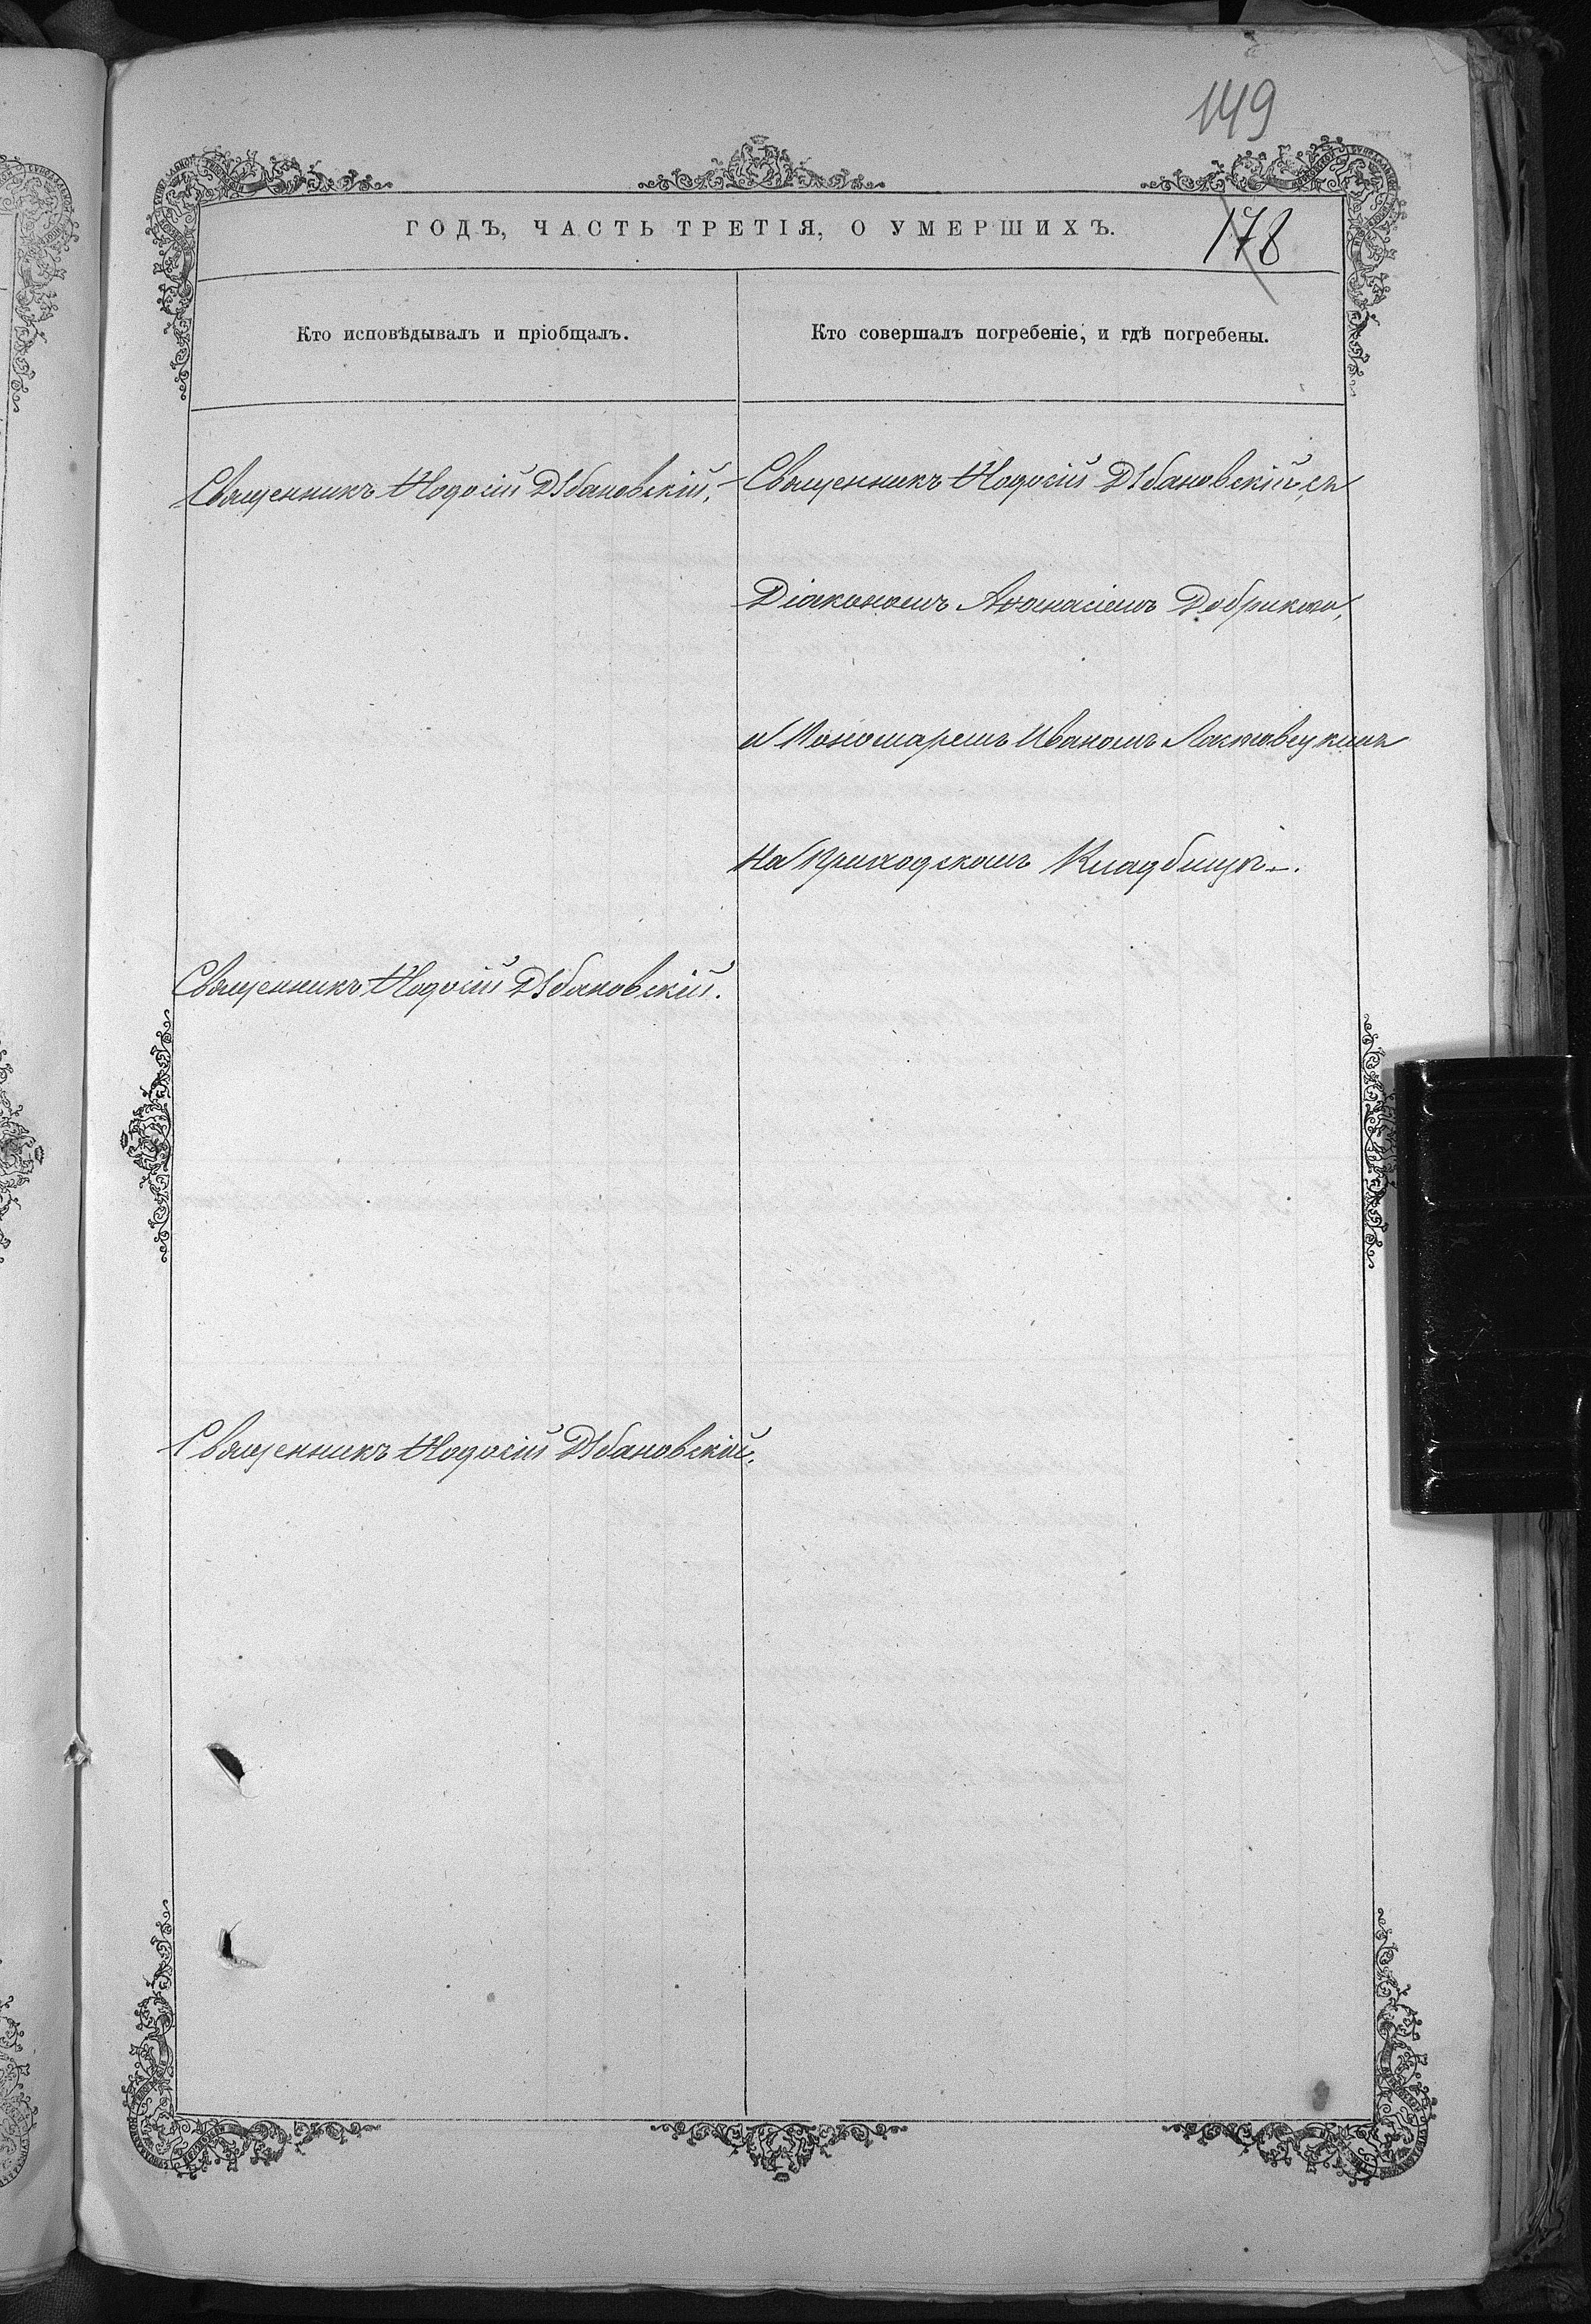 149
ГОДЪ, ЧАСТЬ ТРЕТІЯ, О УМЕРШИХЪ.
178
Кто исповѣдывалъ и пріобщалъ.
Кто совершалъ погребеніе, и гдѣ погребены.
Священникъ Ѳеодосій Дѣбановскій.
Священникъ Ѳеодосій Дѣбановскій, съ
Діакономъ Аѳанасіемъ
и Пономаремъ Иваномъ
на Приходскомъ Кладбищѣ.
Священникъ Ѳеодосій Дѣбановскій.
Священникъ Ѳеодосій Дѣбановскій.